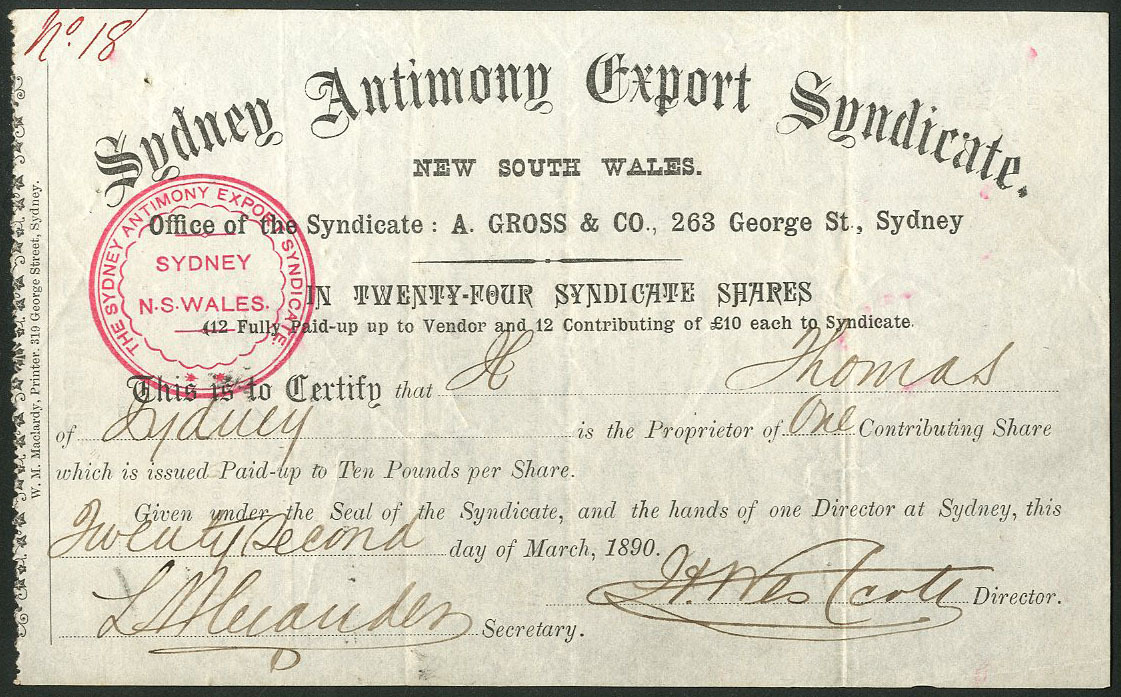 No. 18
Sydney Antimony Export Syndicate.
NEW SOUTH WALES.
Office of the Syndicate: A. GROSS & CO., 263 George St., Sydney
THE SYDNEY ANTIMONY EXPORT SYNDICATE.
SYDNEY
N.S. WALES.
IN TWENTY-FOUR SYNDICATE SHARES
(12 Fully Paid-up up to Vendor and 12 Contributing of £10 each to Syndicate.
This is to Certify that H Thomas
of Sydney is the Proprietor of One Contributing Share
which is issued Paid-up to Ten Pounds per Share.
Given under the Seal of the Syndicate, and the hands of one Director at Sydney, this
Twenty Second day of March, 1890.
J. H. Westcott Director.
L Alexander Secretary.
W. M. Maclardy, Printer. 319 George Street, Sydney.